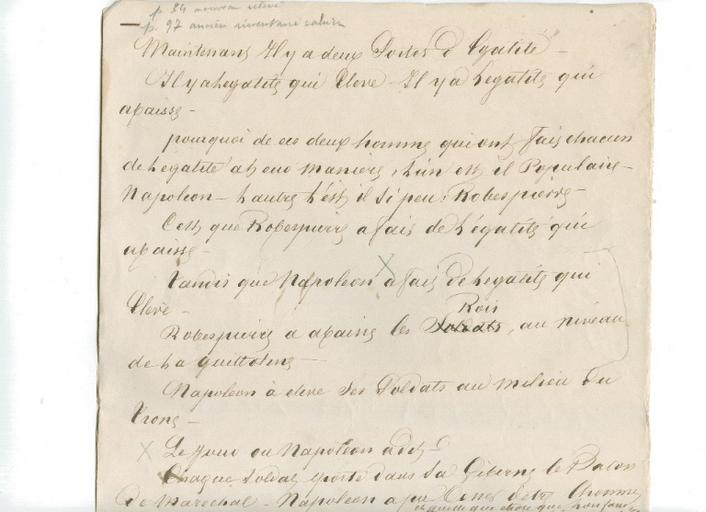 p. 84 nouveau relevé
p. 97 ancien inventaire
Maintenant Il y a deux Sortes d'Egalité -
Il y a Legalité qui Eleve - Il y a Legalité qui
abaisse -
pourquoi de ces deux hommes qui ont fais chacun
de Legalité a Leur maniere, L'un est il Populaire -
Napoleon - Lautre L'est il si peu: Robespierre -
C'est que Robespierre a fais de L'égalité qui
abaisse -
Tandis que Napoleon a fais de Legalité qui
Elève -
Rois
Robespierre a abaissé les Soldats, au niveau
de La guillotine -
Napoleon à elevé Ses Soldats au milieu du
Trone -
Le Jour ou Napoléon a dit
Chaque Soldat porte dans Sa Giberne le Baton
de Marechal - Napoleon a pu l'homme
quelque chose que